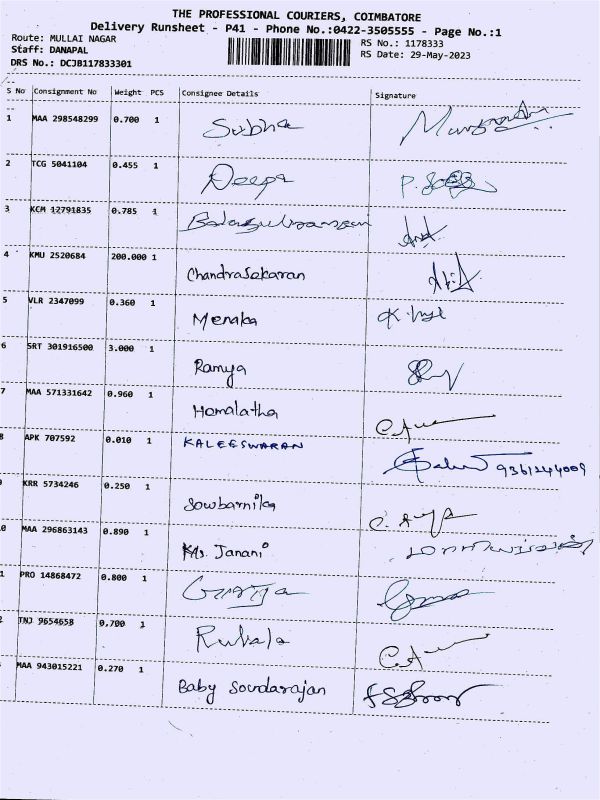 THE PROFESSIONAL COURIERS, COIMBATORE
Delivery Runsheet - P41 - Phone No.:0422-3505555 - Page No.:1
Route: MULLAI NAGAR RS No.: 1178333
Staff: DANAPAL RS Date: 29-May-2023
DRS No.: DCJB117833301
S No Consignment No Weight PCS Consignee Details Signature
1 MAA 298548299 0.700 1 Subha
2 TCG 5041104 0.455 1 Deepa
3 KCM 12791835 0.785 1
4 KMU 2520684 200.000 1 Chandrasekaran
5 VLR 2347099 0.360 1 Menaka
6 SRT 301916500 3.000 1 Ramya
7 MAA 571331642 0.960 1 Hemalatha
8 APK 707592 0.010 1 KALEESWARAN 9361244009
9 KRR 5734246 0.250 1 Sowbarnika
0 MAA 296863143 0.890 1 Ms. Janani
1 PRO 14868472 0.800 1 Girija
2 TNJ 9654658 0.700 1
MAA 943015221 0.270 1 Baby Soundarajan